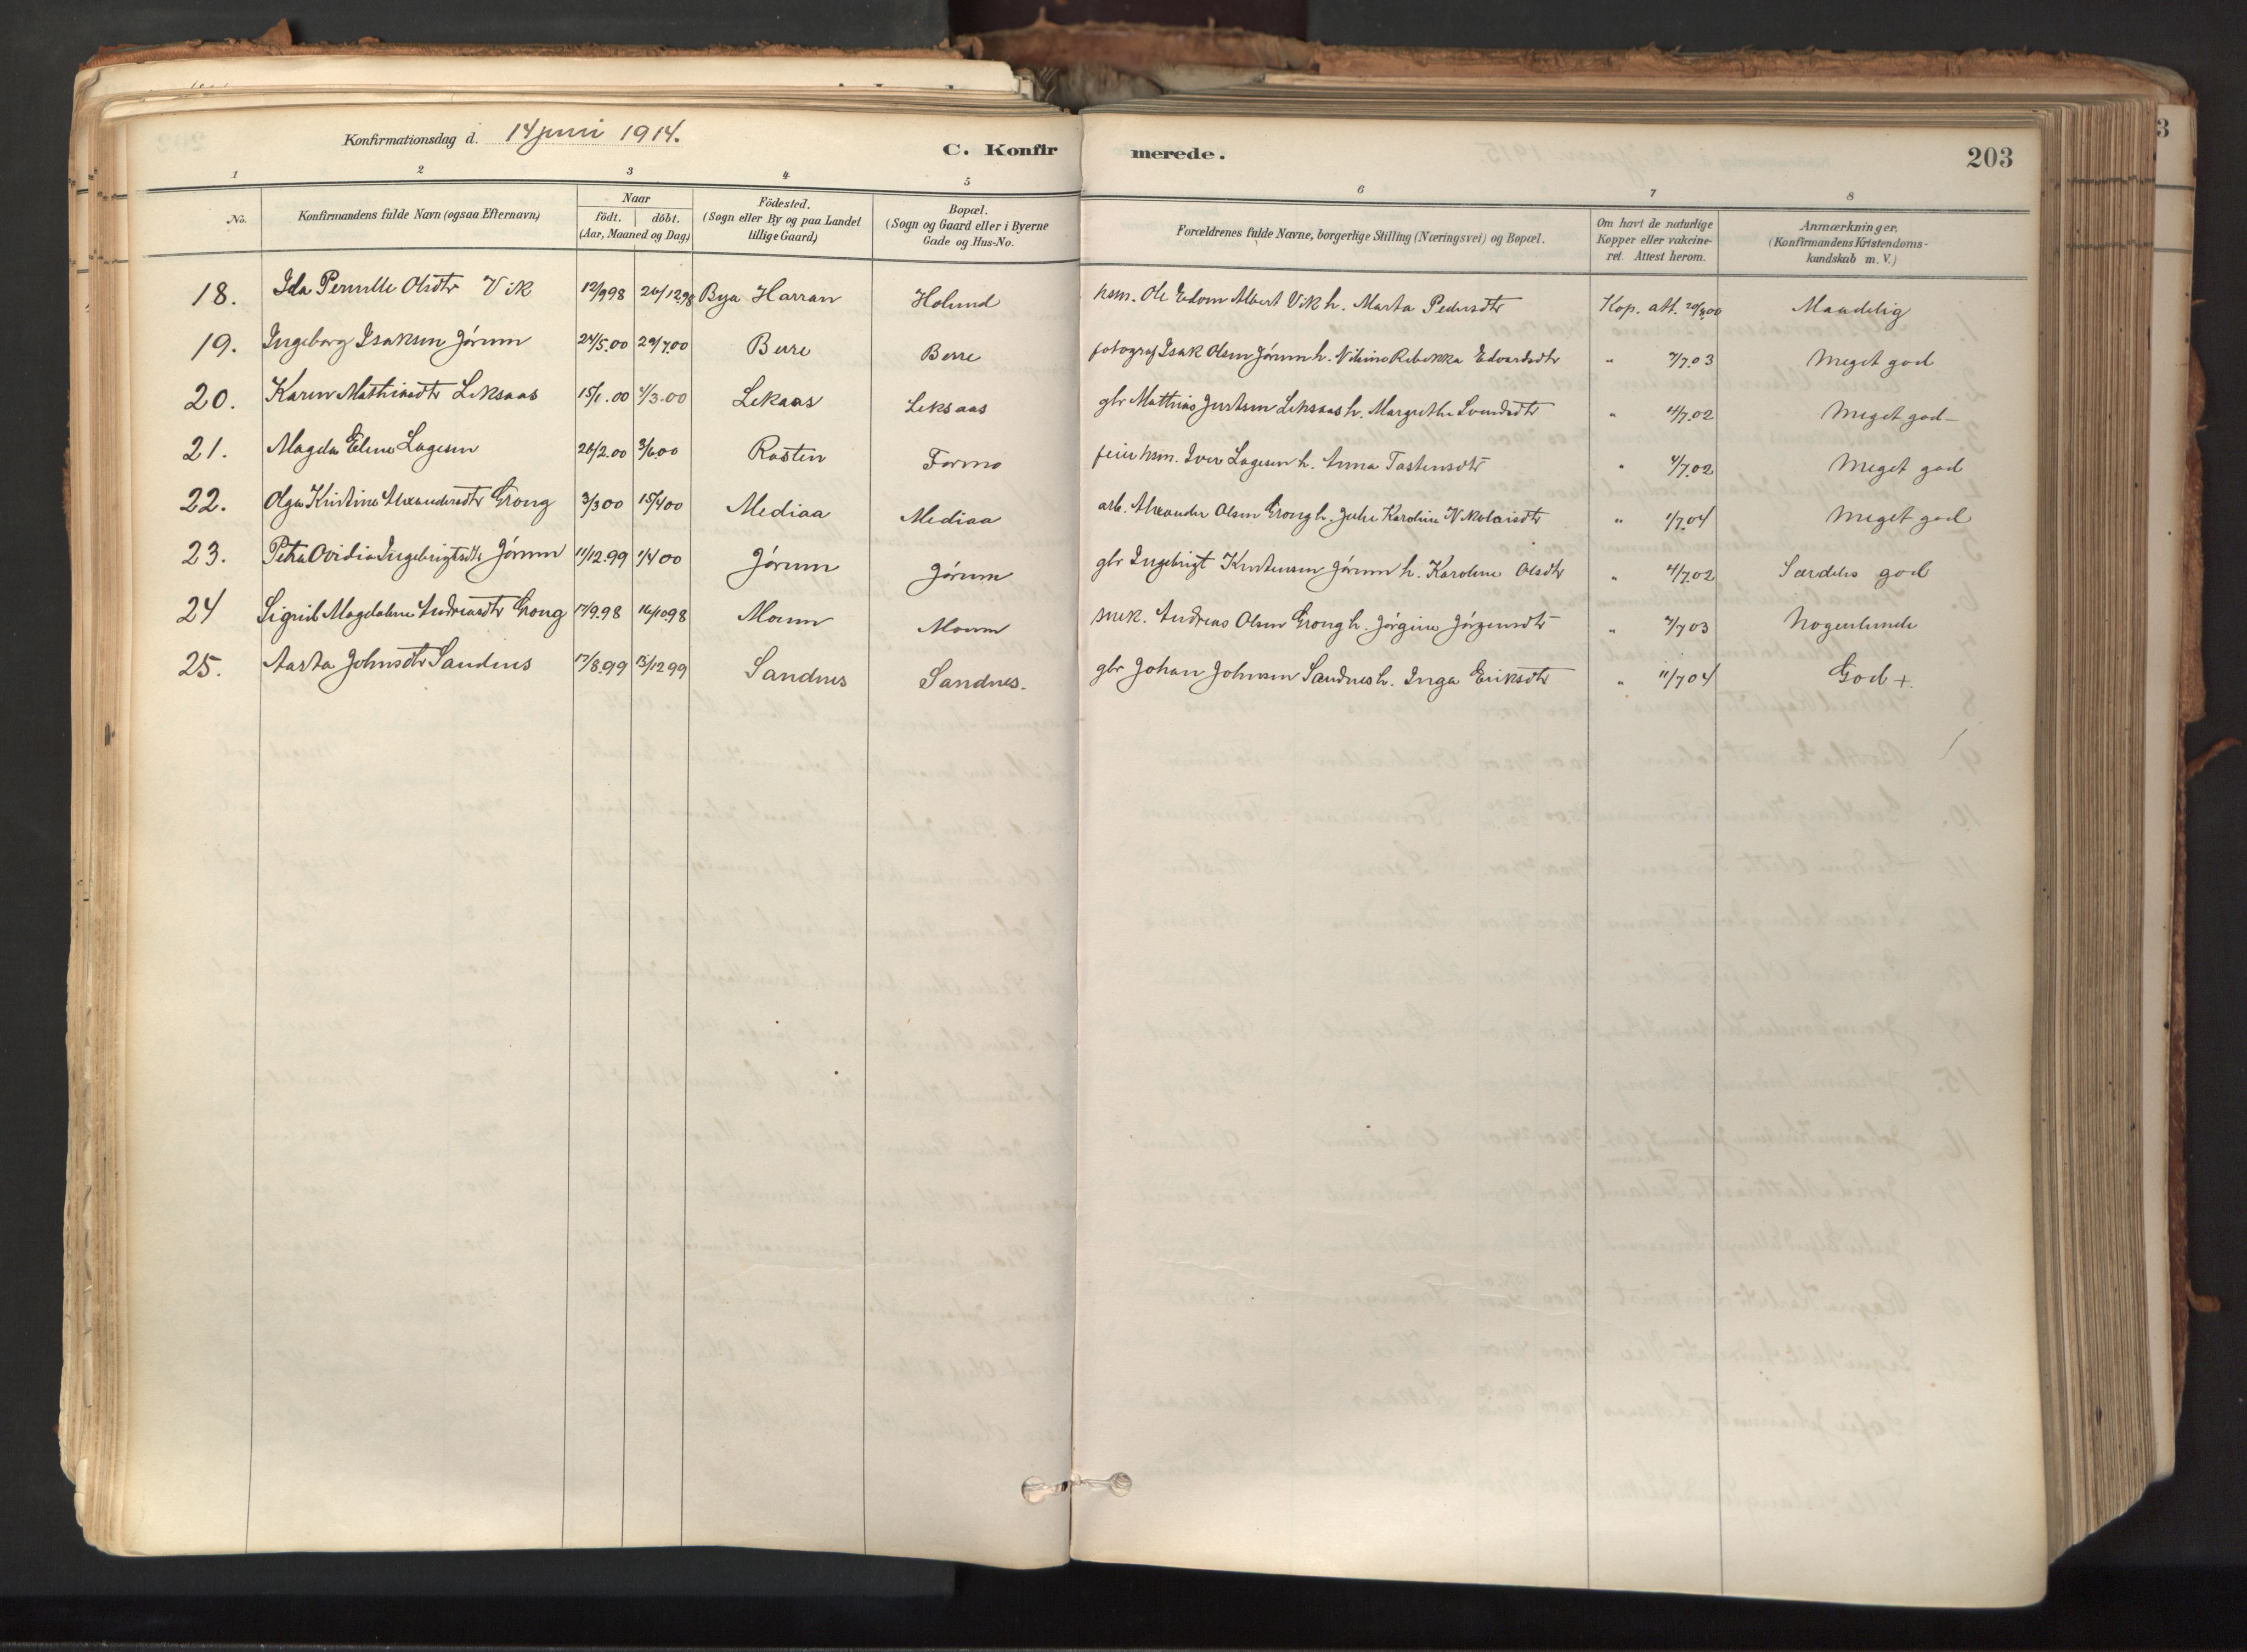 Konfirmationsdag d. 14 juni 1914.
C. Konfirmerede.
203
1 2 3 4 5 6 7 8
No.
Konfirmandens fulde Navn (ogsaa Efternavn)
Naar
födt. döbt.
(Aar, Maaned og Dag)
Födested.
(Sogn eller By og paa Landet
tillige Gaard)
Bopæl.
(Sogn og Gaard eller i Byerne
Gade og Hus-No.
Forældrenes fulde Navne, borgerlige Stilling (Næringsvei) og Bopæl.
Om havt de naturlige
Kopper eller vakcine-
ret. Attest herom.
Anmærkninger.
(Konfirmandens Kristendoms-
kundskab m. V.)
18. Ida Pernille Olsdtr Vik 12/9 98 26/12 98 Bya Harran Holund hsm. Ole Edom Albert Vik h. Marta Pedersdtr Kop. att. 20/8 00 Maadelig
19. Ingeborg Isaksen Jörum 24/5.00 29/7.00 Berre Berre fotograf Isak Olsen Jörum h. Rebekka Edvardsdtr " 7/7.03 Meget god
20. Karen Mathiasdtr Leksaas 15/1.00 4/3.00 Lekaas Leksaas gbr Mathias Justsen Leksaas h. Margrethe Svendsdtr " 4/7.02 Meget god
21. Magda Eline Lagesen 26/2.00 3/6.00 Rosten Formo feier hsm. Iver Lagesen h. Anna Tostensdtr " 4/7.02 Meget god
22. Olga Kristine Alexandersdtr Grong 3/3 00 15/4 00 Mediaa Mediaa arb. Alexander Olsen Grong h. Julie Karoline Nikolaisdtr " 1/7.04 Meget god
23. Petra Ovidia Ingebrigtsdtr Jörum 11/12.99 1/4 00 Jörum Jörum gbr Ingebrigt Kristensen Jörum h. Karoline Olsdtr " 4/7.02 Særdeles god
24 Sigrid Magdalene Andreasdtr Grong 17/9.98 16/10 98 Moum Moum snek. Andreas Olsen Grong h. Jörgine Jörgensdtr " 7/7 03 Nogenlunde
25. Aasta Johnsdtr Sandnes 17/8.99 15/12 99 Sandnes Sandnes. gbr Johan Johnsen Sandnes h. Inga Eriksdtr " 11/7 04 God +.
3